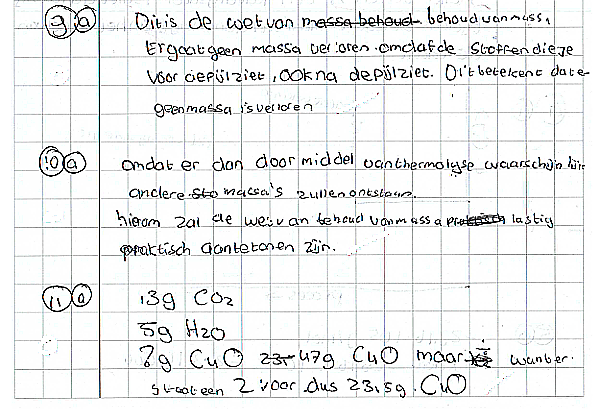 9 a Dit is de wet van massa behoud behoud van massa,
Er gaat geen massa verloren omdat de stoffen die je
voor de pijl ziet, ook na de pijl ziet. Dit betekent dat e-
geen massa is verloren
10 a omdat er dan door middel van thermolyse waarschijnlijk
andere sto massa's zullen ontstaan.
hierom zal de wet van behoud van massa praktisch lastig
praktisch aantetonen zijn.
11 a 13g CO2
5g H2O
?g CuO 23- 47g CuO maar wanber.
staat een 2 voor dus 23,5g CuO